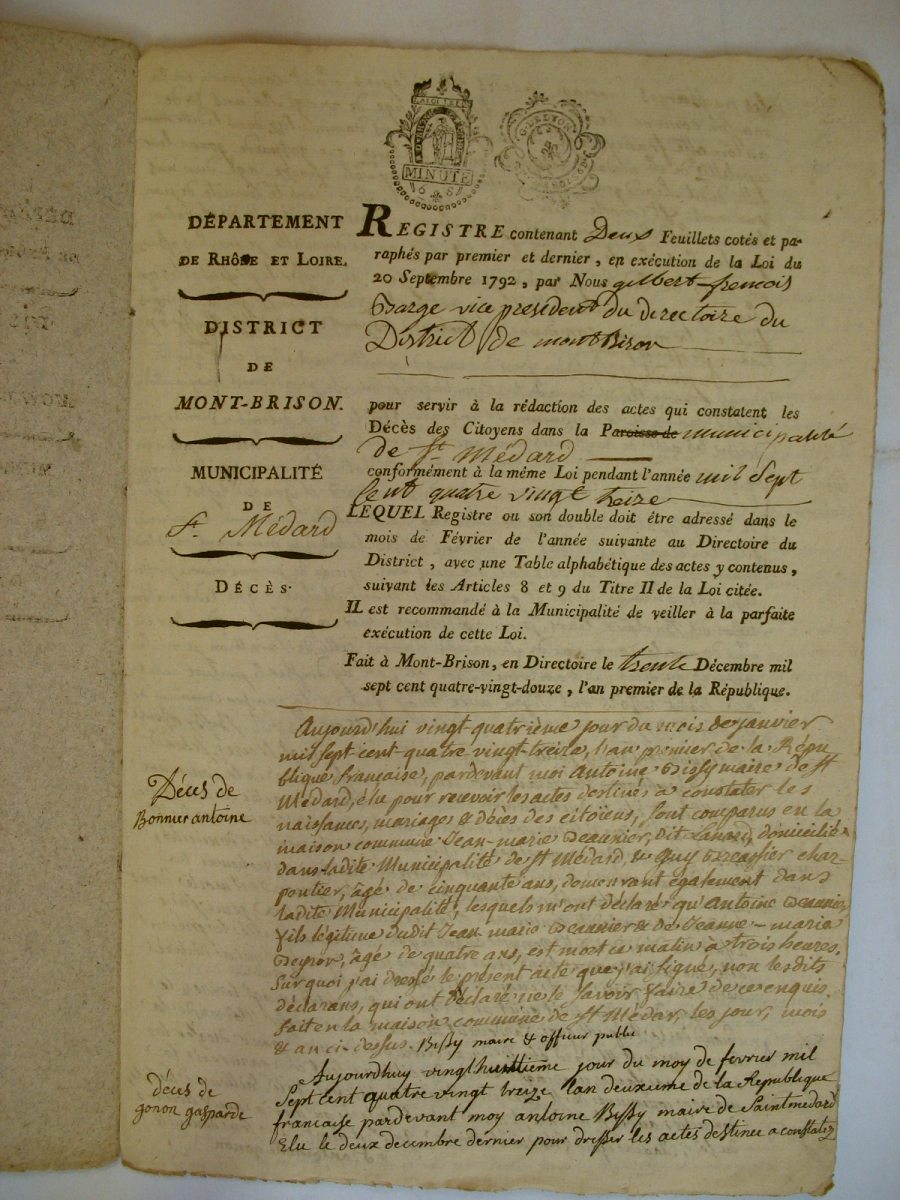 LA LOI LE ROI
MINUTE
6 S
G. DE LYON
DÉPARTEMENT
DE RHÔNE ET LOIRE.
DISTRICT
DE
MONT-BRISON.
MUNICIPALITÉ
DE
St. Médard
DÉCÈS.
REGISTRE contenant Deux Feuillets cotés et pa-
raphés par premier et dernier, en exécution de la Loi du
20 Septembre 1792, par Nous gilbert-francois
Barge vice president du directoire du
District de montbrison
pour servir à la rédaction des actes qui constatent les
Décès des Citoyens dans la Paroisse de municipalité
de St. Médard
conformément à la même Loi pendant l'année mil Sept
Cent quatre vingt treize
LEQUEL Registre ou son double doit être adressé dans le
mois de Février de l'année suivante au Directoire du
District, avec une Table alphabétique des actes y contenus,
suivant les Articles 8 et 9 du Titre II de la Loi citée.
IL est recommandé à la Municipalité de veiller à la parfaite
exécution de cette Loi.
Fait à Mont-Brison, en Directoire le trente Décembre mil
sept cent quatre-vingt-douze, l'an premier de la République.
Décès de
Bonnier antoine
Aujourd'hui vingt-quatrième jour du mois de janvier
mil sept cent quatre vingt-treize, l'an premier de la Répu
blique française, pardevant moi Antoine Bissy maire de St
Médard, élu pour recevoir les actes destinés à constater les
naissances, mariages & décès des citoïens, sont comparus en la
maison commune Jean-marie Beaunier, dit domicilié
dans ladite Municipalité de St Médard, & Guy char-
pentier, âgé de cinquante ans, demeurant également dans
ladite Municipalité, lesquels m'ont déclaré qu'Antoine Beaunier
fils légitime dudit Jean-marie Beaunier & de Jeanne-marie
Peyron, âgé de quatre ans, est mort ce matin à trois heures.
Sur quoi j'ai dressé le présent acte que j'ai signé, non lesdits
déclarans, qui ont déclaré ne le savoir faire de ce enquis.
fait en la maison commune de St Médar, les jour, mois
& an ci-dessus. Bissy maire & officier public
décès de
gonon gasparde
Aujourdhuy vingthuittieme jour du moy de fevrier mil
Sept cent quatre vingt treize lan deuxieme de la Republique
francaise pardevant moy antoine Bissy maire de Saintmedard
Elu le deux decembre dernier pour dresser les actes destinee a constatez